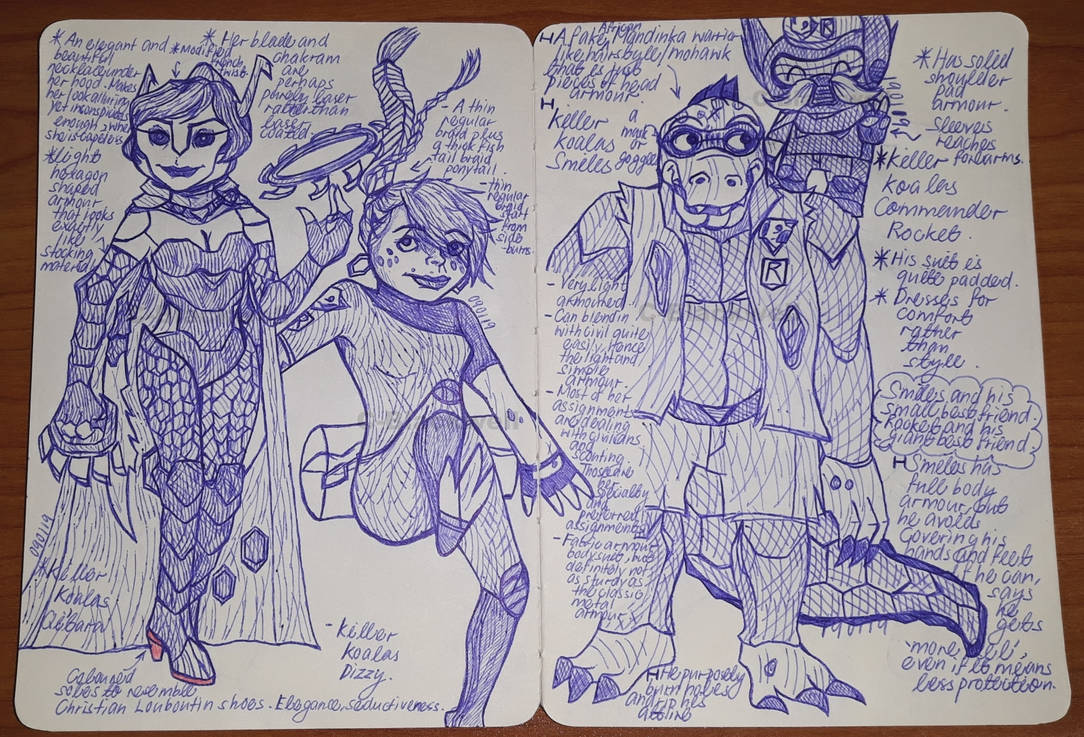 * An elegant and
beautiful
necklace under
her hood. Makes
her look alluring
yet inconspicuous
enough when
she is capeless
* Light
hexagon
shaped
armour
that looks
exactly
like
stocking
material
* Modified
french
twist.
* Her blade and
chakram
are
perhaps
purely laser
rather than
laser
coated.
- A thin
regular
braid plus
a thick fish
tail braid
ponytail.
- thin
regular
braid
start
from
side
-burns.
090119
090119
* Killer
Koalas
Qibara
Coloured
soles to resemble
Christian Louboutin shoes. Elegance, seductiveness.
- Killer
Koalas
Dizzy.
H A fake African Mandinka warrior
like hairstyle/mohawk
that is just
pieces of head
armour.
H
Killer
Koalas
Smiles
a
mask
or
goggles
- Very light
armoured.
- Can blend in
with civil quite
easily, hence
the light and
simple
armour.
- Most of her
assignments
are dealing
with civilians
and
scouting
Those are
her
specialty
and
preferred
assignments
- Fabric armour
bodysuit, not
definitely not
as sturdy as
the classic
metal
armour.
H He purposely
burn holes
and rip his
attire
190119
* Has solid
shoulder
pad
armour.
- Sleeves
reaches
forearms.
* Killer
Koalas
Commander
Rocket.
* His suit is
quite padded.
* Dresses for
comfort
rather
than
style.
Smiles and his
small best friend.
Rocket and his
giant best friend
H Smiles has
full body
armour, but
he avoids
covering his
hands and feet
if he can,
says
he
gets
'more feel',
even if it means
less protection.
190119
R
R